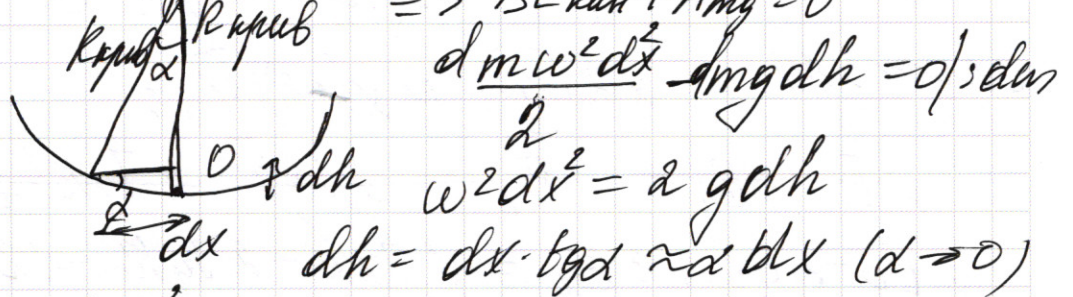 R крив
R крив
α
dmω²dx²/2 - dmgdh = 0 | : dm
O
dh
ω²dx² = 2gdh
α
dx
dh = dx·tgα ≈ α dx (α→0)